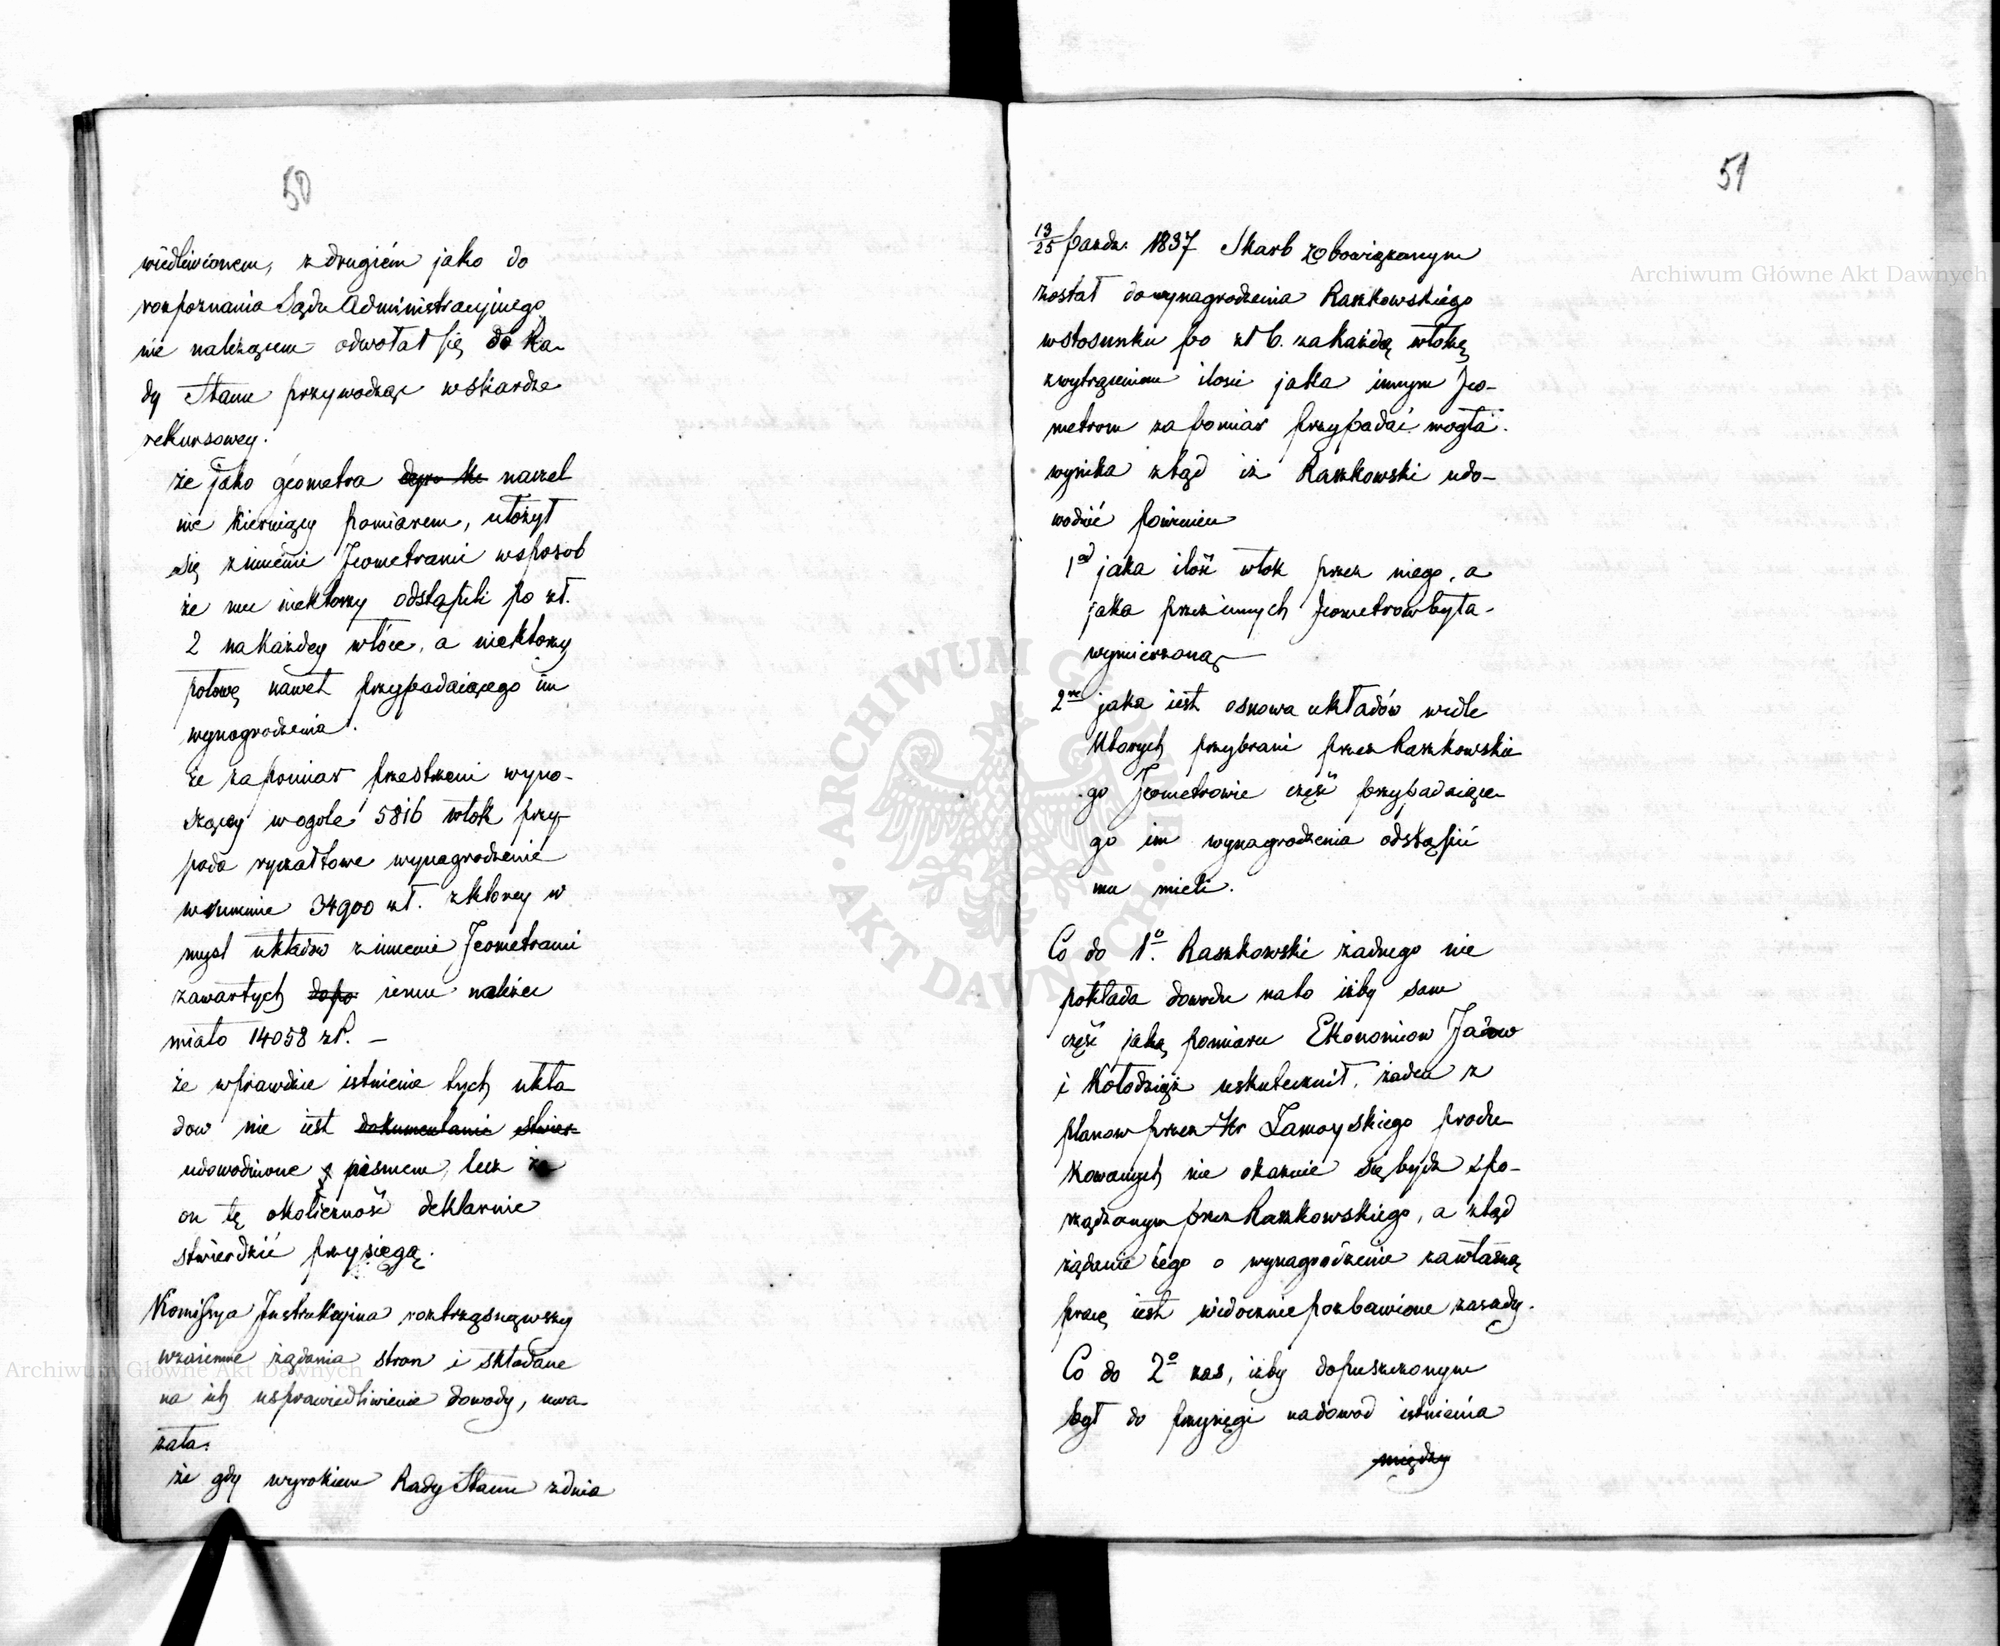 50
wiedliwionem, z drugiém jako do
rozpoznania Sądu Administracyjnego
nie należącem odwołał się do Ra-
dy Stanu przywodząc w skardze
rekursowey.
że jako geometra naczel
nie kierujący pomiarem, ułożył
się z innemi Jeometrami wsposob
że mu niektorzy odstąpili po zł.
2 na każdey włóce, a niektorzy
połowę nawet przypadaiącego im
wynagrodzenia.
że za pomiar przestrzeni wyno-
szącey w ogole 5816 włok przy-
pada ryczałtowe wynagrodzenie
w summie 34900 zł. z ktorey w
mysl układow z innemi Jeometrami
zawartych dopo iemu należeć
miało 14058 zł. —
że wprawdzie istnienie tych ukła
dow nie iest dokumentami stwier-
udowodnione pismem, lecz że
on tę okoliczność deklaruie
stwierdzić przysięgą.
Komissya Instrukcyina roztrząsnąwszy
wzaiemne żądania stron i składane
na ich usprawiedliwienie dowody, uwa-
żała:
że gdy wyrokiem Rady Stanu z dnia
51
13/25 pazdz. 1837 Skarb zobowiązanym
został do wynagrodzenia Raszkowskiego
w stosunku po zł 6. za każdą włokę
z wytrąceniem ilosci jaka innym Jeo-
metrom za pomiar przypadać mogła.
wynika ztąd iż Raszkowski udo-
wodnić powinien
1od jaka ilość włok przez niego, a
jaka przez innych Jeometrow była
wymierzoną —
2re jaka iest osnowa układów wedle
ktorych przybrani przez Raszkowskie
go Jeometrowie część przypadaiące-
go im wynagrodzenia odstąpić
mu mieli.
Co do 1o. Raszkowski żadnego nie
pokłada dowodu na to iżby sam
część jaką pomiaru Ekonomiow
i Kołodziąż uskutecznił, żaden z
planow przez Hr Zamoyskiego produ-
kowanych nie okazuie się bydź spo-
rządzonym przez Raszkowskiego, a ztąd
żądanie iego o wynagrodzenie za własną
pracę iest widocznie pozbawione zasady.
Co do 2o zas, iżby dopuszczonym
był do przysięgi na dowod istnienia
między
Archiwum Główne Akt Dawnych
Archiwum Główne Akt Dawnych
ARCHIWUM GŁÓWNE · AKT DAWNYCH ·